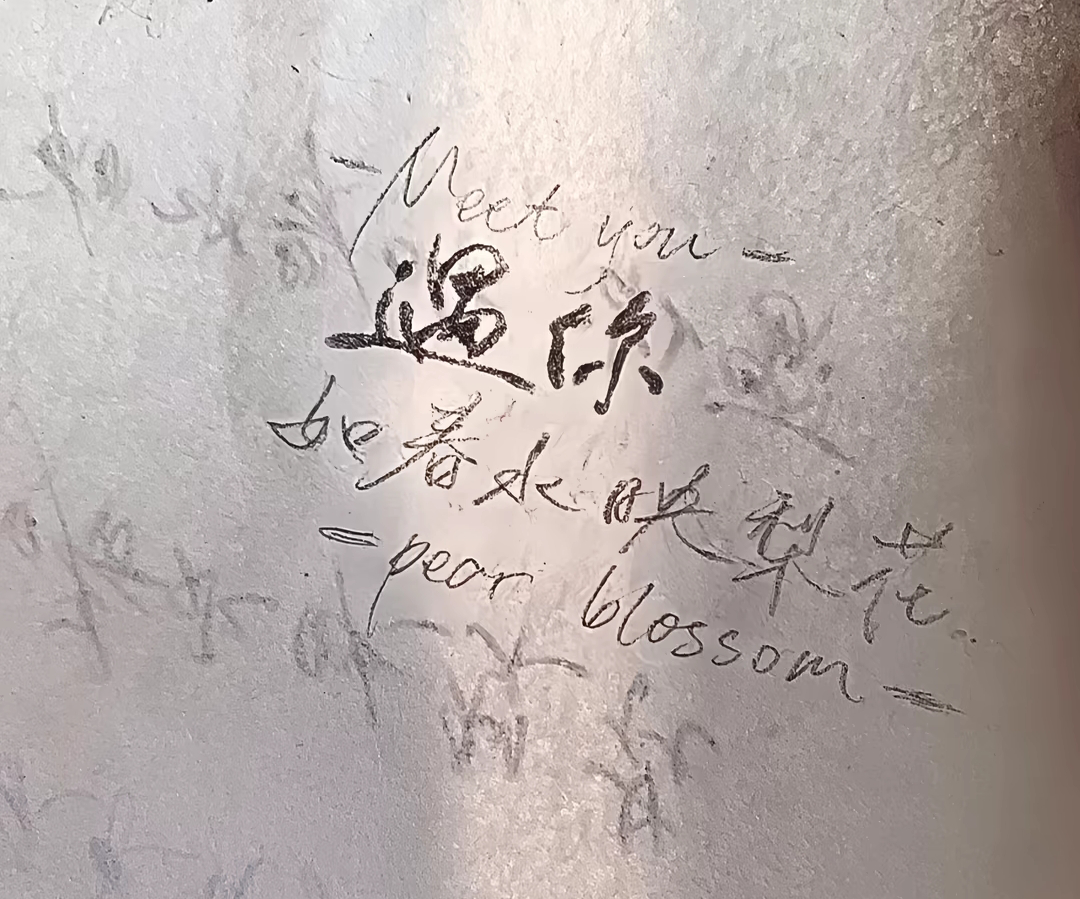 - Meet you -
遇你
如春水映梨花..
- pear blossom -